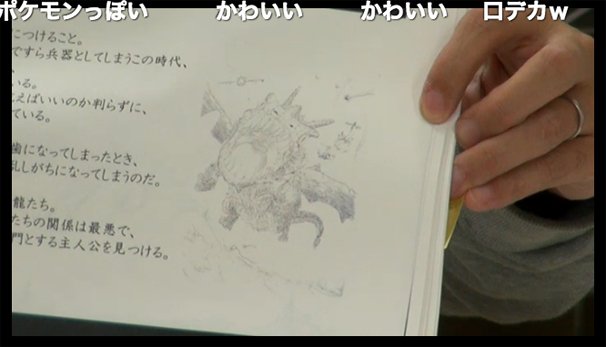 ポケモンっぽい かわいい かわいい 口デカw
につけること。
ですら兵器としてしまうこの時代、
いる。
えばいいのか判らずに、
ている。
歯になってしまったとき、
乱しがちになってしまうのだ。
龍たち。
たちの関係は最悪で、
門とする主人公を見つける。